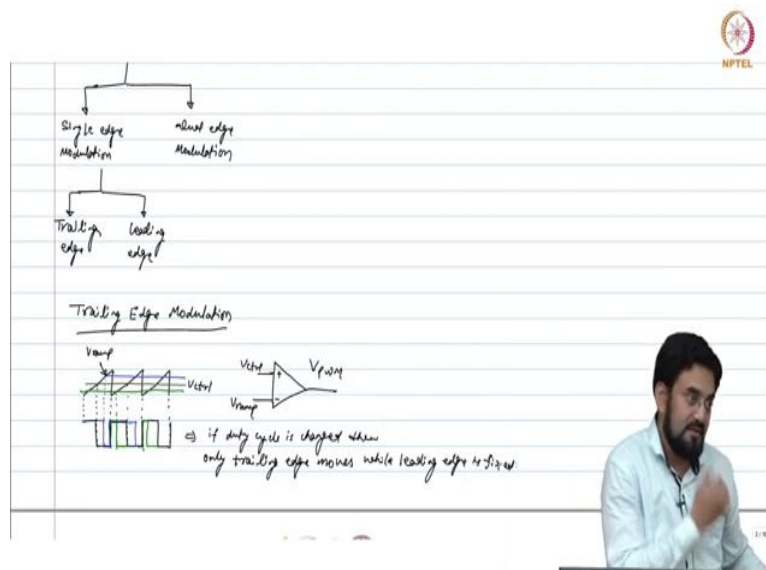 NPTEL
Single edge Modulation
dual edge Modulation
Trailing edge
Leading edge
Trailing Edge Modulation
Vramp
Vctrl
Vctrl
+
Vramp
-
Vpwm
⇒ if duty cycle is changed then
only trailing edge moves while leading edge is fixed.